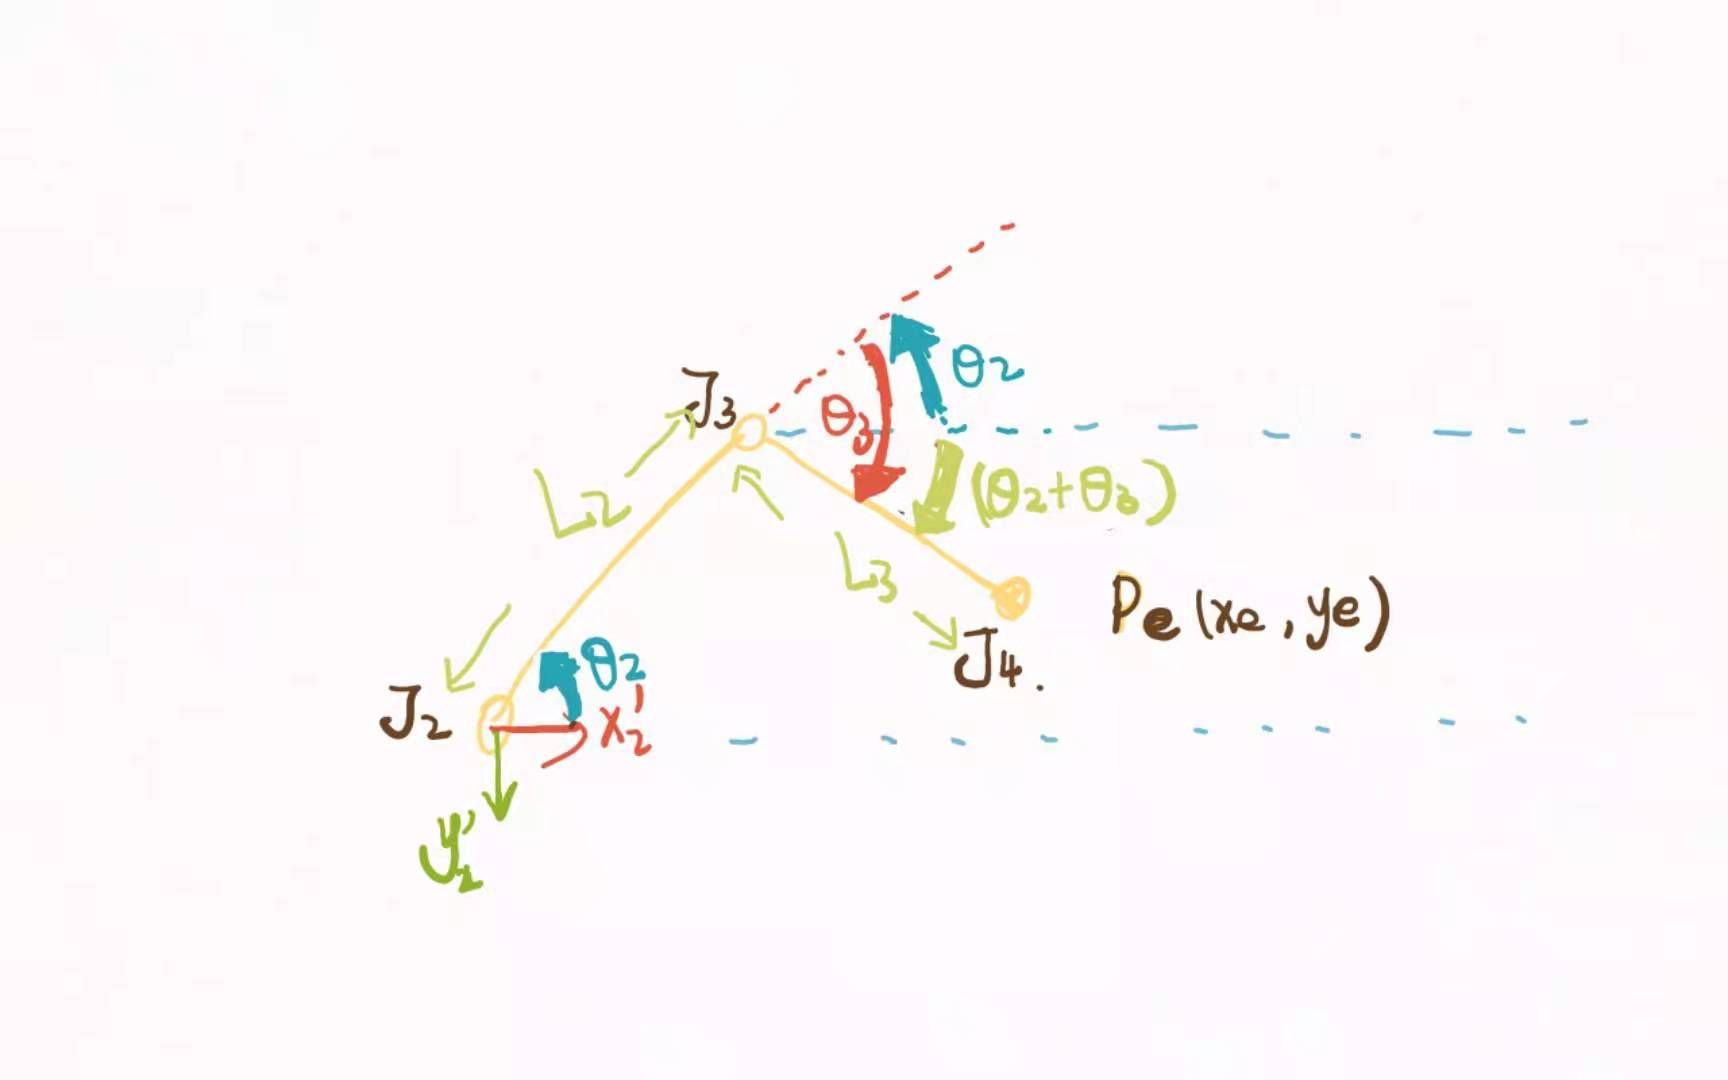 J3
θ2
θ3
(θ2+θ3)
L2
L3
Pe (xe, ye)
θ2
J4.
J2
x2'
y2'